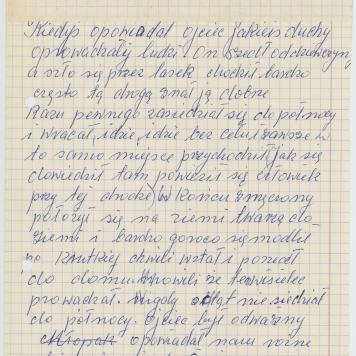 Kiedyś opowiadał ojciec jakieś duchy
oprowadzały ludzi. On szedł od dziewczyny
a szło się przez lasek chodził bardzo
często tą drogą znał ją dobrze
Razu pewnego zasiedział się do północy
i wracał, idzie, idzie bez celu i zawsze w
to samo miejsce przychodził, jak się
dowiedział tam powiesił się człowiek
przy tej drodze, w końcu zmęczony
położył się na ziemi twarzą do
ziemi i bardzo gorąco się modlił
po krutkiej chwili wstał i poszedł
do domu. Mówili że to wisielec
prowadzał. Nigdy odtąt nie siedział
do północy. Ojciec był odważny
opowiadał nam różne